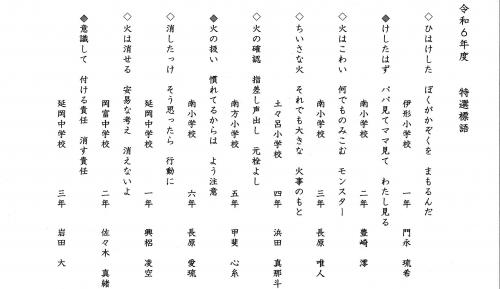 令和６年度　特選標語
◇ひはけした　ぼくがかぞくを　まもるんだ
伊形小学校　一年　門永　琉希
◆けしたはず　パパ見てママ見て　わたし見る
南小学校　二年　豊崎　澪
◇火はこわい　何でものみこむ　モンスター
南小学校　三年　長原　唯人
◇ちいさな火　それでも大きな　火事のもと
土々呂小学校　四年　浜田　真那斗
◇火の確認　指差し声出し　元栓よし
南方小学校　五年　甲斐　心糸
◆火の扱い　慣れてるからは　よう注意
南小学校　六年　長原　愛琉
◇消したっけ　そう思ったら　行動に
延岡中学校　一年　興梠　凌空
◇火は消せる　安易な考え　消えないよ
岡富中学校　二年　佐々木　真緒
◆意識して　付ける責任　消す責任
延岡中学校　三年　岩田　大